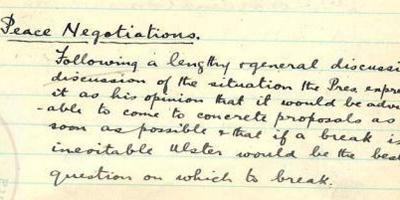 Peace Negotiations.
Following a lengthy & general discussi
discussion of the situation the Pres. expre
it as his opinion that it would be advis
-able to come to concrete proposals as
soon as possible & that if a break is
inevitable Ulster would be the best
question on which to break.